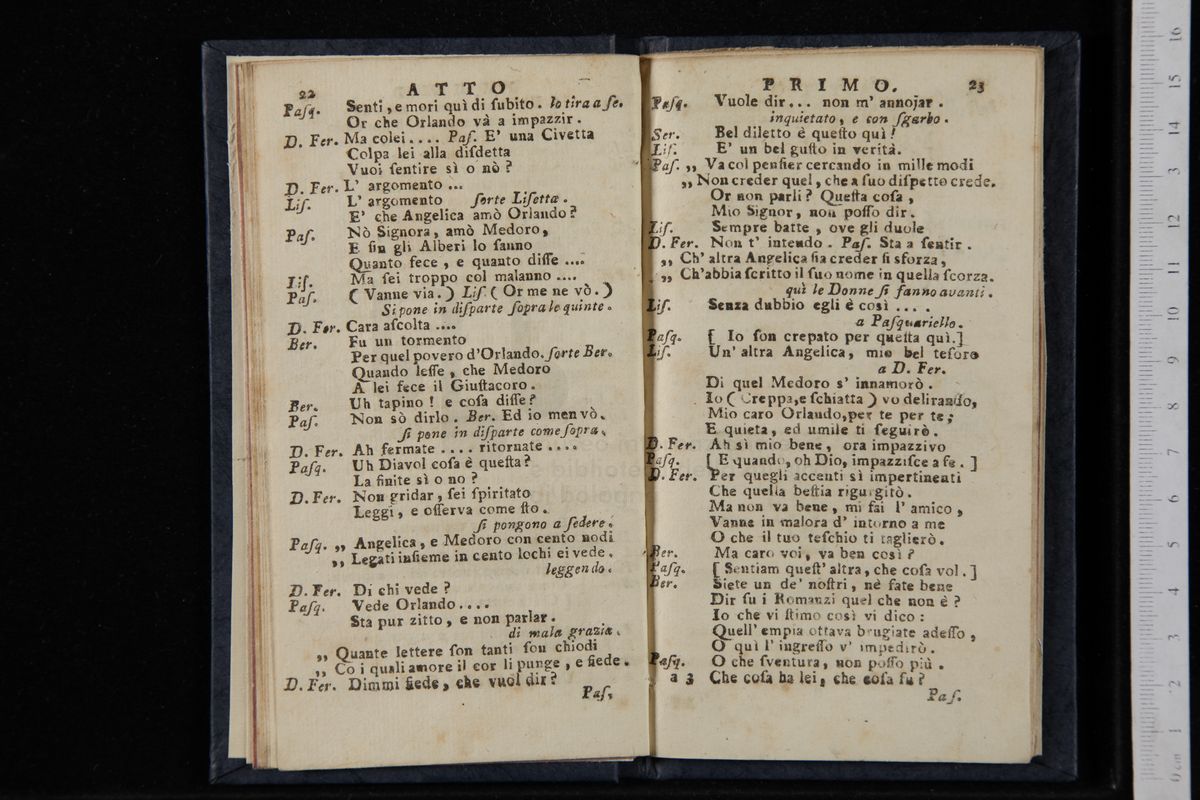 22 ATTO
Paſq. Senti, e mori quì di ſubito. Io tira a ſe.
Or che Orlando và a impazzir.
D. Fer. Ma colei.... Paſ. E' una Civetta
Colpa lei alla diſdetta
Vuoi ſentire sì o nò?
D. Fer. L' argomento ...
Liſ. L' argomento ſorte Liſetta.
E' che Angelica amò Orlando?
Paſ. Nò Signora, amò Medoro,
E ſin gli Alberi lo ſanno
Quanto fece, e quanto diſſe ....
Liſ. Ma ſei troppo col malanno ....
Paſ. ( Vanne via. ) Liſ. ( Or me ne vò. )
Si pone in diſparte ſopra le quinte.
D. Fer. Cara aſcolta ....
Ber. Fu un tormento
Per quel povero d'Orlando. ſorte Ber.
Quando leſſe, che Medoro
A lei fece il Giuſtacoro.
Ber. Uh tapino! e coſa diſſe?
Paſ. Non sò dirlo. Ber. Ed io men vò.
ſi pone in diſparte come ſopra.
D. Fer. Ah fermate .... ritornate ....
Paſq. Uh Diavol coſa è queſta?
La finite sì o no?
D. Fer. Non gridar, ſei ſpiritato
Leggi, e oſſerva come ſto.
ſi pongono a ſedere.
Paſq. „ Angelica, e Medoro con cento nodi
„ Legati inſieme in cento lochi ei vede.
leggendo.
D. Fer. Di chi vede?
Paſq. Vede Orlando....
Sta pur zitto, e non parlar.
di mala grazia.
„ Quante lettere ſon tanti ſon chiodi
„ Co i quali amore il cor li punge, e fiede.
D. Fer. Dimmi fiede, che vuol dir?
Paſ.
PRIMO. 23
Paſq. Vuole dir... non m' annojar.
inquietato, e con ſgarbo.
Ser. Bel diletto è queſto quì!
Liſ. E' un bel guſto in verità.
Paſ. „ Va col penſier cercando in mille modi
„ Non creder quel, che a ſuo diſpetto crede.
Or non parli? Queſta coſa,
Mio Signor, non poſſo dir.
Liſ. Sempre batte, ove gli duole
D. Fer. Non t' intendo. Paſ. Sta a ſentir.
„ Ch' altra Angelica ſia creder ſi sforza,
„ Ch'abbia ſcritto il ſuo nome in quella ſcorza.
quì le Donne ſi fanno avanti.
Liſ. Senza dubbio egli è così ....
a Paſquariello.
Paſq. [ Io ſon crepato per queſta quì. ]
Liſ. Un' altra Angelica, mio bel teſoro
a D. Fer.
Di quel Medoro s' innamorò.
Io ( Creppa, e ſchiatta ) vo delirando,
Mio caro Orlando, per te per te;
E quieta, ed umile ti ſeguirò.
D. Fer. Ah sì mio bene, ora impazzivo
Paſq. [ E quando, oh Dio, impazziſce a ſe. ]
D. Fer. Per quegli accenti sì impertinenti
Che quella beſtia rigurgitò.
Ma non va bene, mi fai l' amico,
Vanne in malora d' intorno a me
O che il tuo teſchio ti taglierò.
Ber. Ma caro voi, va ben così?
Paſq. [ Sentiam queſt' altra, che coſa vol. ]
Ber. Siete un de' noſtri, nè fate bene
Dir ſu i Romanzi quel che non è?
Io che vi ſtimo così vi dico:
Quell' empia ottava brugiate adeſſo,
O quì l' ingreſſo v' impedirò.
Paſq. O che ſventura, non poſſo più.
a 3 Che coſa ha lei, che coſa fu?
Paſ.